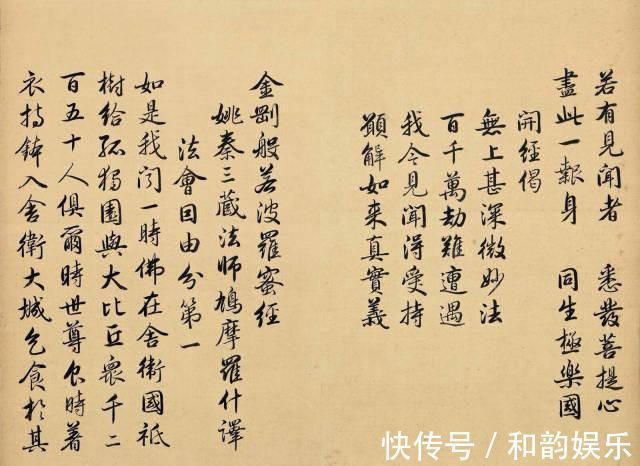 若有見聞者 悉發菩提心
盡此一報身 同生極樂國
開經偈
無上甚深微妙法
百千萬劫難遭遇
我今見聞得受持
願解如来真實義
金剛般若波羅蜜經
姚秦三藏法師鳩摩羅什譯
法會因由分第一
如是我闻一時佛在舍衛國祇
樹給孤獨園與大比丘眾千二
百五十人俱爾時世尊食時著
衣持鉢入舍衛大城乞食於其
快传号 / 和韵娱乐